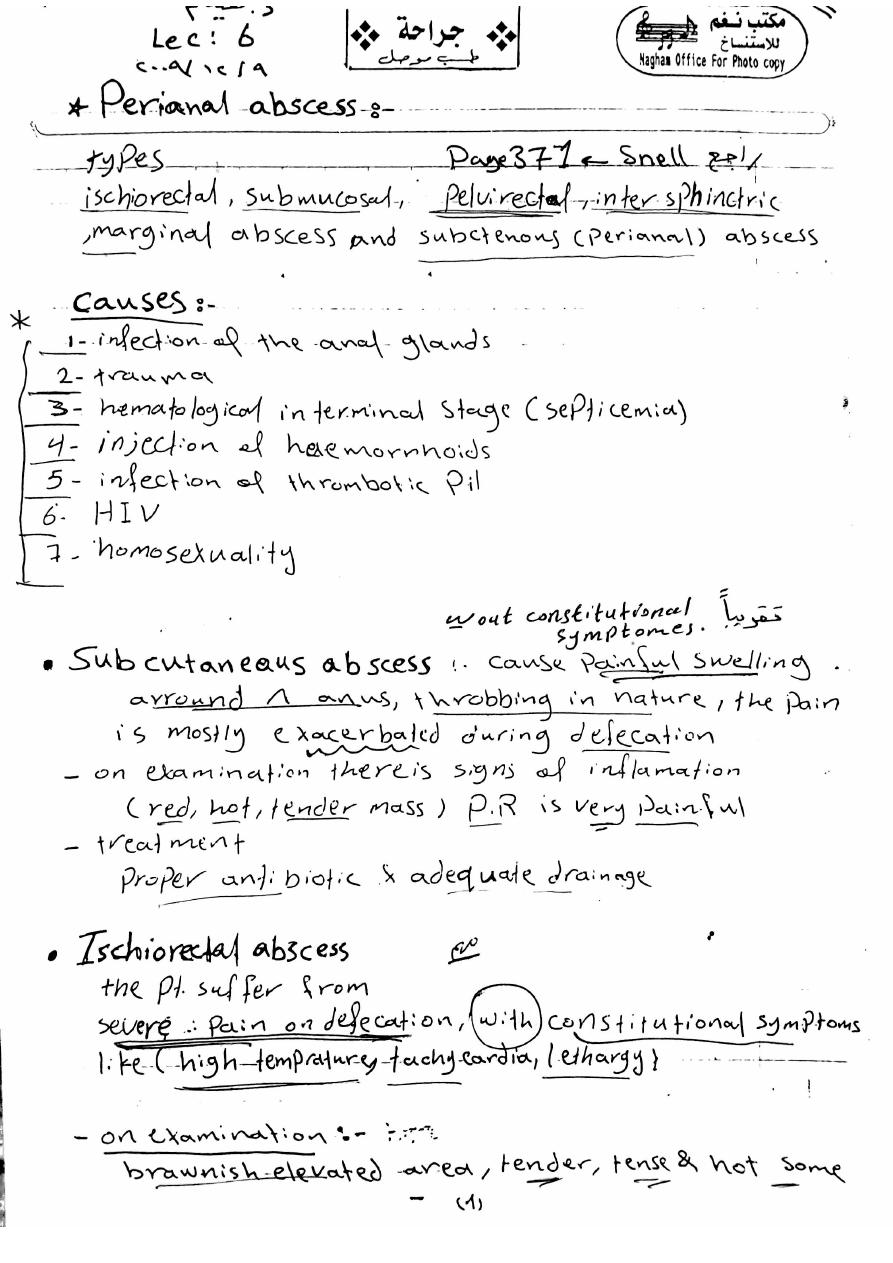 Lec: 6
٢٠٠٩/١٢/٩
جراحة
طب موصل
مكتب نغم
للاستنساخ
Nagham Office For Photo copy
* Perianal abscess :-
types Page 371 ← Snell راجع
ischiorectal, submucosal, Pelvirectal, inter sphinctric
, marginal abscess and subctenous (Perianal) abscess
* Causes :-
1- infection of the anal glands
2- trauma
3- hematological in terminal stage (septicemia)
4- injection of haemorrhoids
5- infection of thrombotic Pil
6- HIV
7- homosexuality
wout constitutional تقريباً
symptomes.
• Subcutaneaus abscess : cause Painful swelling
arround Λ anus, throbbing in nature, the pain
is mostly exacerbated during defecation
- on examination there is signs of inflamation
(red, hot, tender mass) P.R is very Painful
- treatment
Proper antibiotic & adequate drainage
• Ischiorectal abscess
the Pt. suffer from
severe Pain on defecation, (with) constitutional symptoms
like (high temprature, tachycardia, lethargy)
- on examination :-
brawnish elevated area, tender, tense & hot some
- (1)